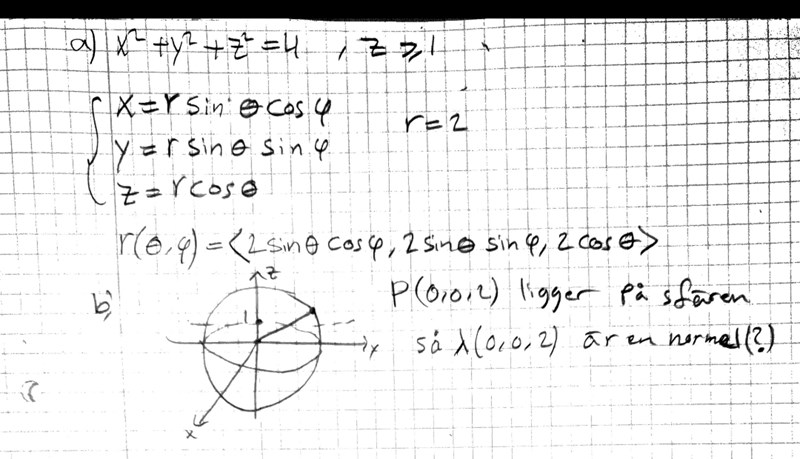 a) x² + y² + z² = 4 , z ⩾ 1
x = r sin θ cos φ
y = r sin θ sin φ
z = r cos θ
r = 2
r(θ, φ) = ⟨2 sin θ cos φ, 2 sin θ sin φ, 2 cos θ⟩
b)
z
1
x
x
P(0,0,2) ligger på sfären
så λ(0,0,2) är en normal(?)